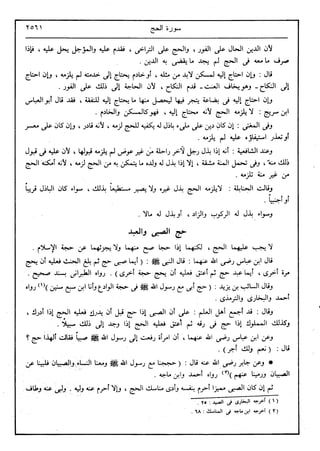 سورة الحج ٢٥٦١
لأن الدين الحال على الفور، والحج على التراخى، فقدم عليه والمؤجل يحل عليه، فإذا
صرف ما معه فى الحج لم يجد ما يقضى به الدين.
قال: وإن احتاج إليه لمسكن لابد من مثله، أو خادم يحتاج إلى خدمته لم يلزمه، وإن احتاج
إلى النكاح - وهو يخاف العنت - قدم النكاح، لأن الحاجة إلى ذلك على الفور.
وإن احتاج إليه فى بضاعة يتجر فيها ليحصل منها ما يحتاج إليه للنفقة، فقد قال أبو العباس
ابن سريج: لا يلزمه الحج لأنه محتاج إليه، فهو كالمسكن والخادم.
وفى المغنى: إن كان دين على ملىء باذل له يكفيه للحج لزمه، لأنه قادر، وإن كان على معسر
أو تعذر استيفاؤه عليه لم يلزمه.
وعند الشافعية: أنه إذا بذل رجل لآخر راحلة من غير عوض لم يلزمه قبولها، لأن عليه فى قبول
ذلك منة، وفى تحمل المنة مشقة، إلا إذا بذل له ولده ما يتمكن به من الحج لزمه، لأنه أمكنه الحج
من غير منة تلزمه.
وقالت الحنابلة: لا يلزمه الحج بذل غيره ولا يصير مستطيعاً بذلك، سواء كان الباذل قريباً
أو أجنبياً.
وسواء بذل له الركوب والزاد، أو بذل له مالا.
حج الصبى والعبد
لا يجب عليهما الحج، لكنهما إذا حجا صح منهما ولا يجزئهما عن حجة الإسلام.
قال ابن عباس رضى الله عنهما: قال النبى ﷺ: (أيما صبى حج ثم بلغ الحنث فعليه أن يحج
مرة أخرى، أيما عبد حج ثم أعتق فعليه أن يحج حجة أخرى). رواه الطبرانى بسند صحيح.
وقال السائب بن يزيد: (حج أبى مع رسول الله ﷺ فى حجة الوداع وأنا ابن سبع سنين (١)) رواه
أحمد والبخارى والترمذى.
وقال: قد أجمع أهل العلم: على أن الصبى إذا حج قبل أن يدرك فعليه الحج إذا أدرك،
وكذلك المملوك إذا حج فى رقه ثم أعتق فعليه الحج إذا وجد إلى ذلك سبيلاً.
وقال ابن عباس رضى الله عنهما، أن امرأة رفعت إلى رسول الله ﷺ صبياً فقالت ألهذا حج؟
قال: (نعم ولك أجر).
* وعن جابر رضى الله عنه قال: (حججنا مع رسول الله ﷺ ومعنا النساء والصبيان فلبينا عن
الصبيان ورمينا عنهم (٢)) رواه أحمد وابن ماجه.
ثم إن كان الصبى مميزا أحرم بنفسه وأدى مناسك الحج، وإلا أحرم عنه وليه. ولبى عنه وطاف
(١) أخرجه البخارى فى الصيد: ٢٥.
(٢) أخرجه ابن ماجه فى المناسك: ٦٨.